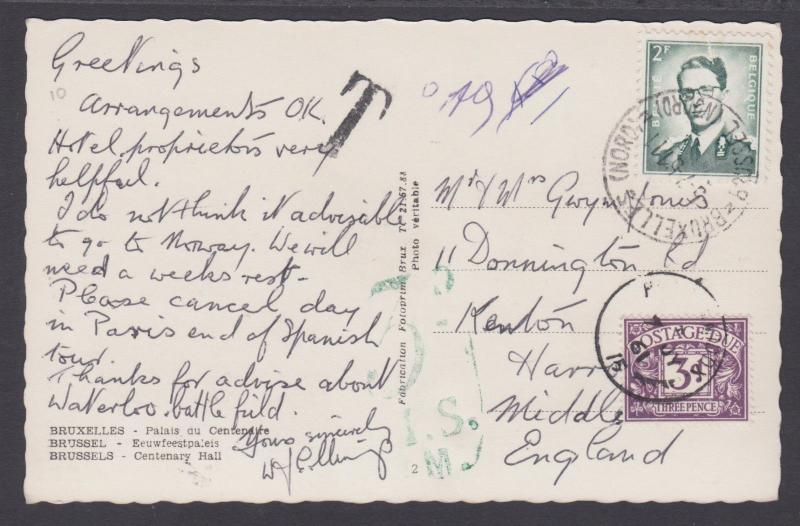 Greetings
10
Arrangements OK.
Hotel proprietors very
helpful.
I do not think it advisable
to go to Norway. We will
need a weeks rest.
Please cancel day
in Paris end of Spanish
tour.
Thanks for advise about
Waterloo battle field.
Yours sincerely
BRUXELLES - Palais du Centenaire
BRUSSEL - Eeuwfeestpaleis
BRUSSELS - Centenary Hall
T
Fabrication Fotoprim Brux Tél. 21.67.88
Photo véritable
2
2F
BELGIE BELGIQUE
BRUXELLES (NORD)
BRUSSEL (NOORD)
Mr & Mrs Gwyn Jones
11 Donnington Rd
Kenton
Harr
Middle
England
POSTAGE DUE
3D
THREE PENCE